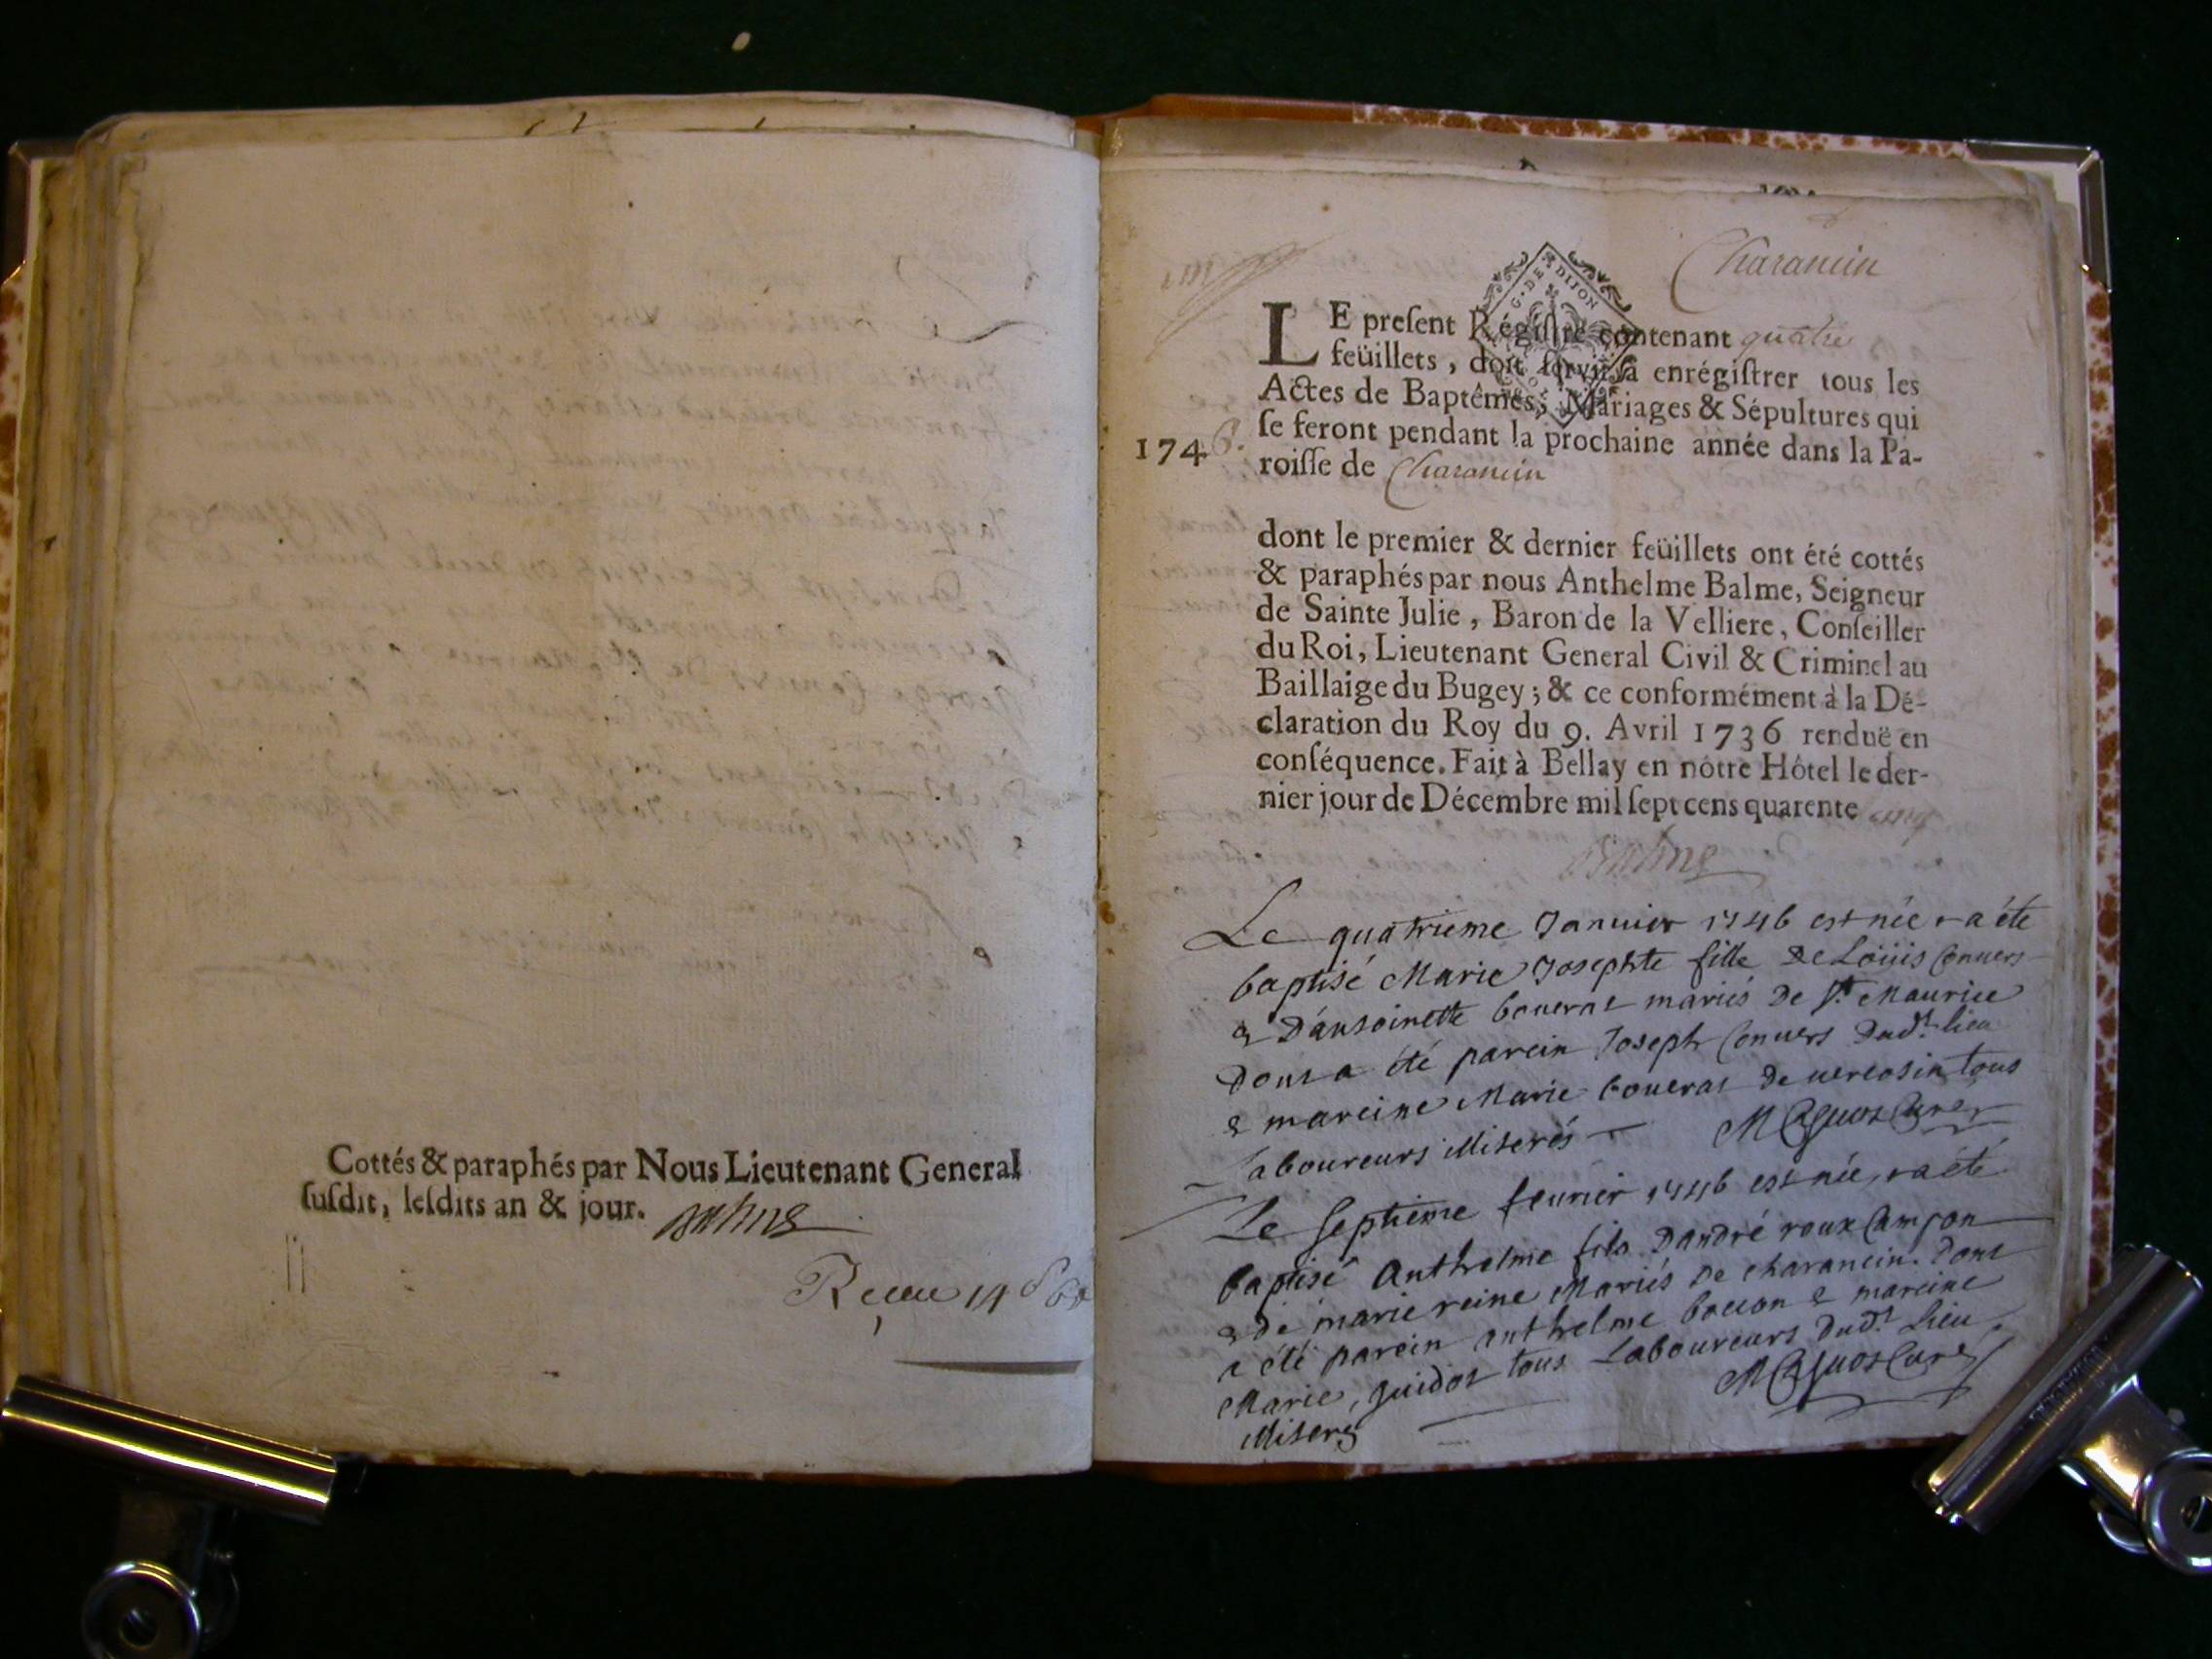 Cottés & paraphés par Nous Lieutenant General
susdit, lesdits an & jour. Balme
Charancin
G. DE DIJON
LE present Régistre contenant quatre
feüillets, doit servir à enrégistrer tous les
Actes de Baptêmes, Mariages & Sépultures qui
se feront pendant la prochaine année dans la Pa-
1746.
roisse de Charancin
dont le premier & dernier feüillets ont été cottés
& paraphés par nous Anthelme Balme, Seigneur
de Sainte Julie, Baron de la Velliere, Conseiller
du Roi, Lieutenant General Civil & Criminel au
Baillaige du Bugey; & ce conformément à la Dé-
claration du Roy du 9. Avril 1736 renduë en
conséquence. Fait à Bellay en nôtre Hôtel le der-
nier jour de Décembre mil sept cens quarente cinq
Balme
Le quatrieme Janvier 1746 est née & a été
baptisé Marie Josephte fille de Loüis Convers
& D'antoinette boverat mariés de St. Maurice
Dont a été parein Joseph Convers Dudt. lieu
& mareine Marie boverat de tous
laboureurs illiterés Curé
Le septieme fevrier 1746 est née, & a été
baptisé Anthelme fils D'andré roux
& de marie reine Mariés de charancin. Dont
a été parein anthelme & mareine
Marie, guidot tous Laboureurs Dudt. Lieu.
Curé